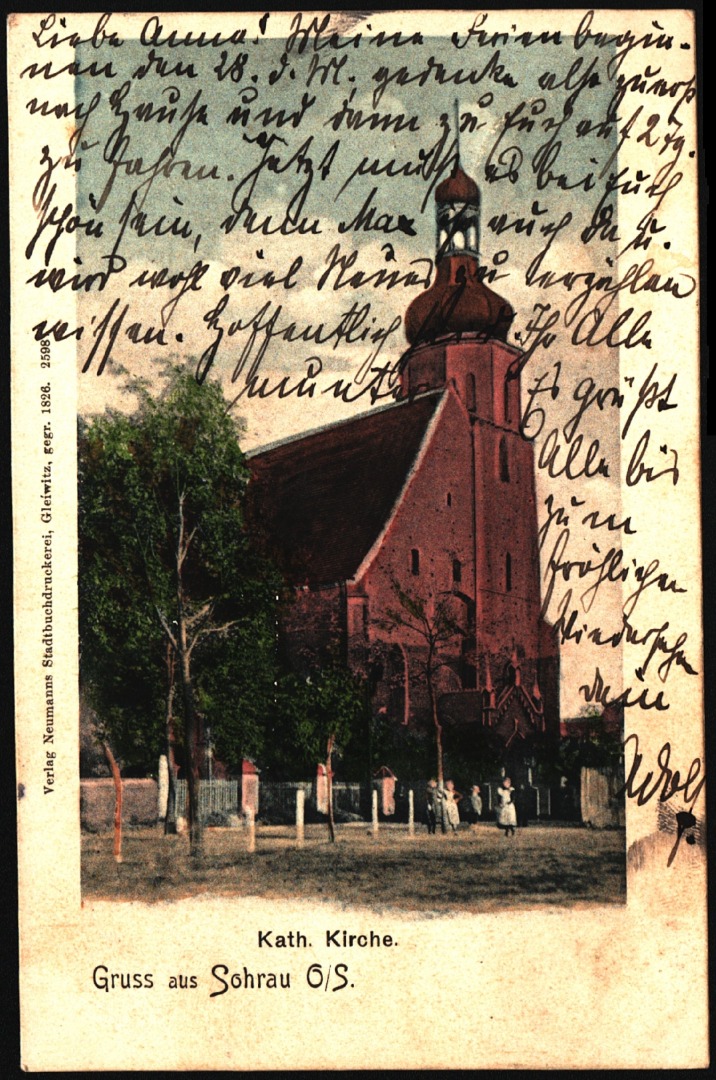 Liebe Anna! Meine Ferien begin-
nen den 28. d. M., gedenke also zuerst
nach Hause und dann zu Euch auf 2 Tg.
zu fahren. Jetzt muß es bei Euch
schön sein, denn Max ist auch da u.
wird wohl viel Neues zu erzählen
wissen. Hoffentlich seid Ihr Alle
munter. Es grüßt
Alle bis
zum
fröhlichen
Wiedersehn
Dein
Adolf
Verlag Neumanns Stadtbuchdruckerei, Gleiwitz, gegr. 1826. 2598
Kath. Kirche.
Gruss aus Sohrau O/S.